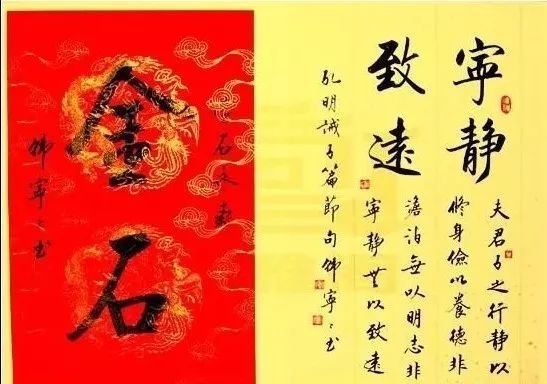 寧静
致遠
夫君子之行静以
修身儉以養德非
澹泊無以明志非
寧静無以致遠
孔明誡子篇節句 寧〻书
金石
寧〻书